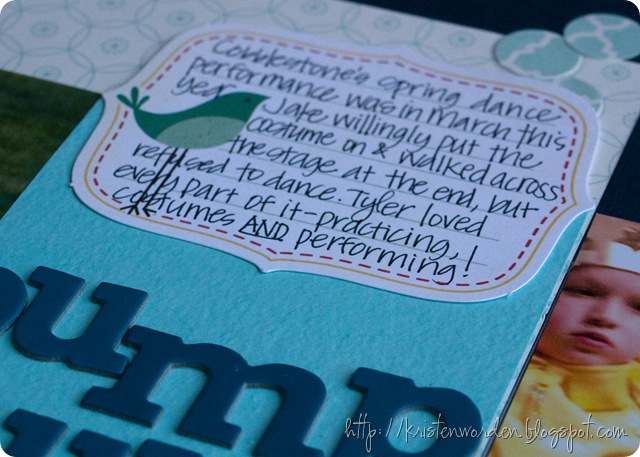 Cobblestone's spring dance
performance was in March this
year. Jake willingly put the
costume on & walked across
the stage at the end, but
refused to dance. Tyler loved
every part of it-practicing,
costumes AND performing!
ump
http://kristenworden.blogspot.com